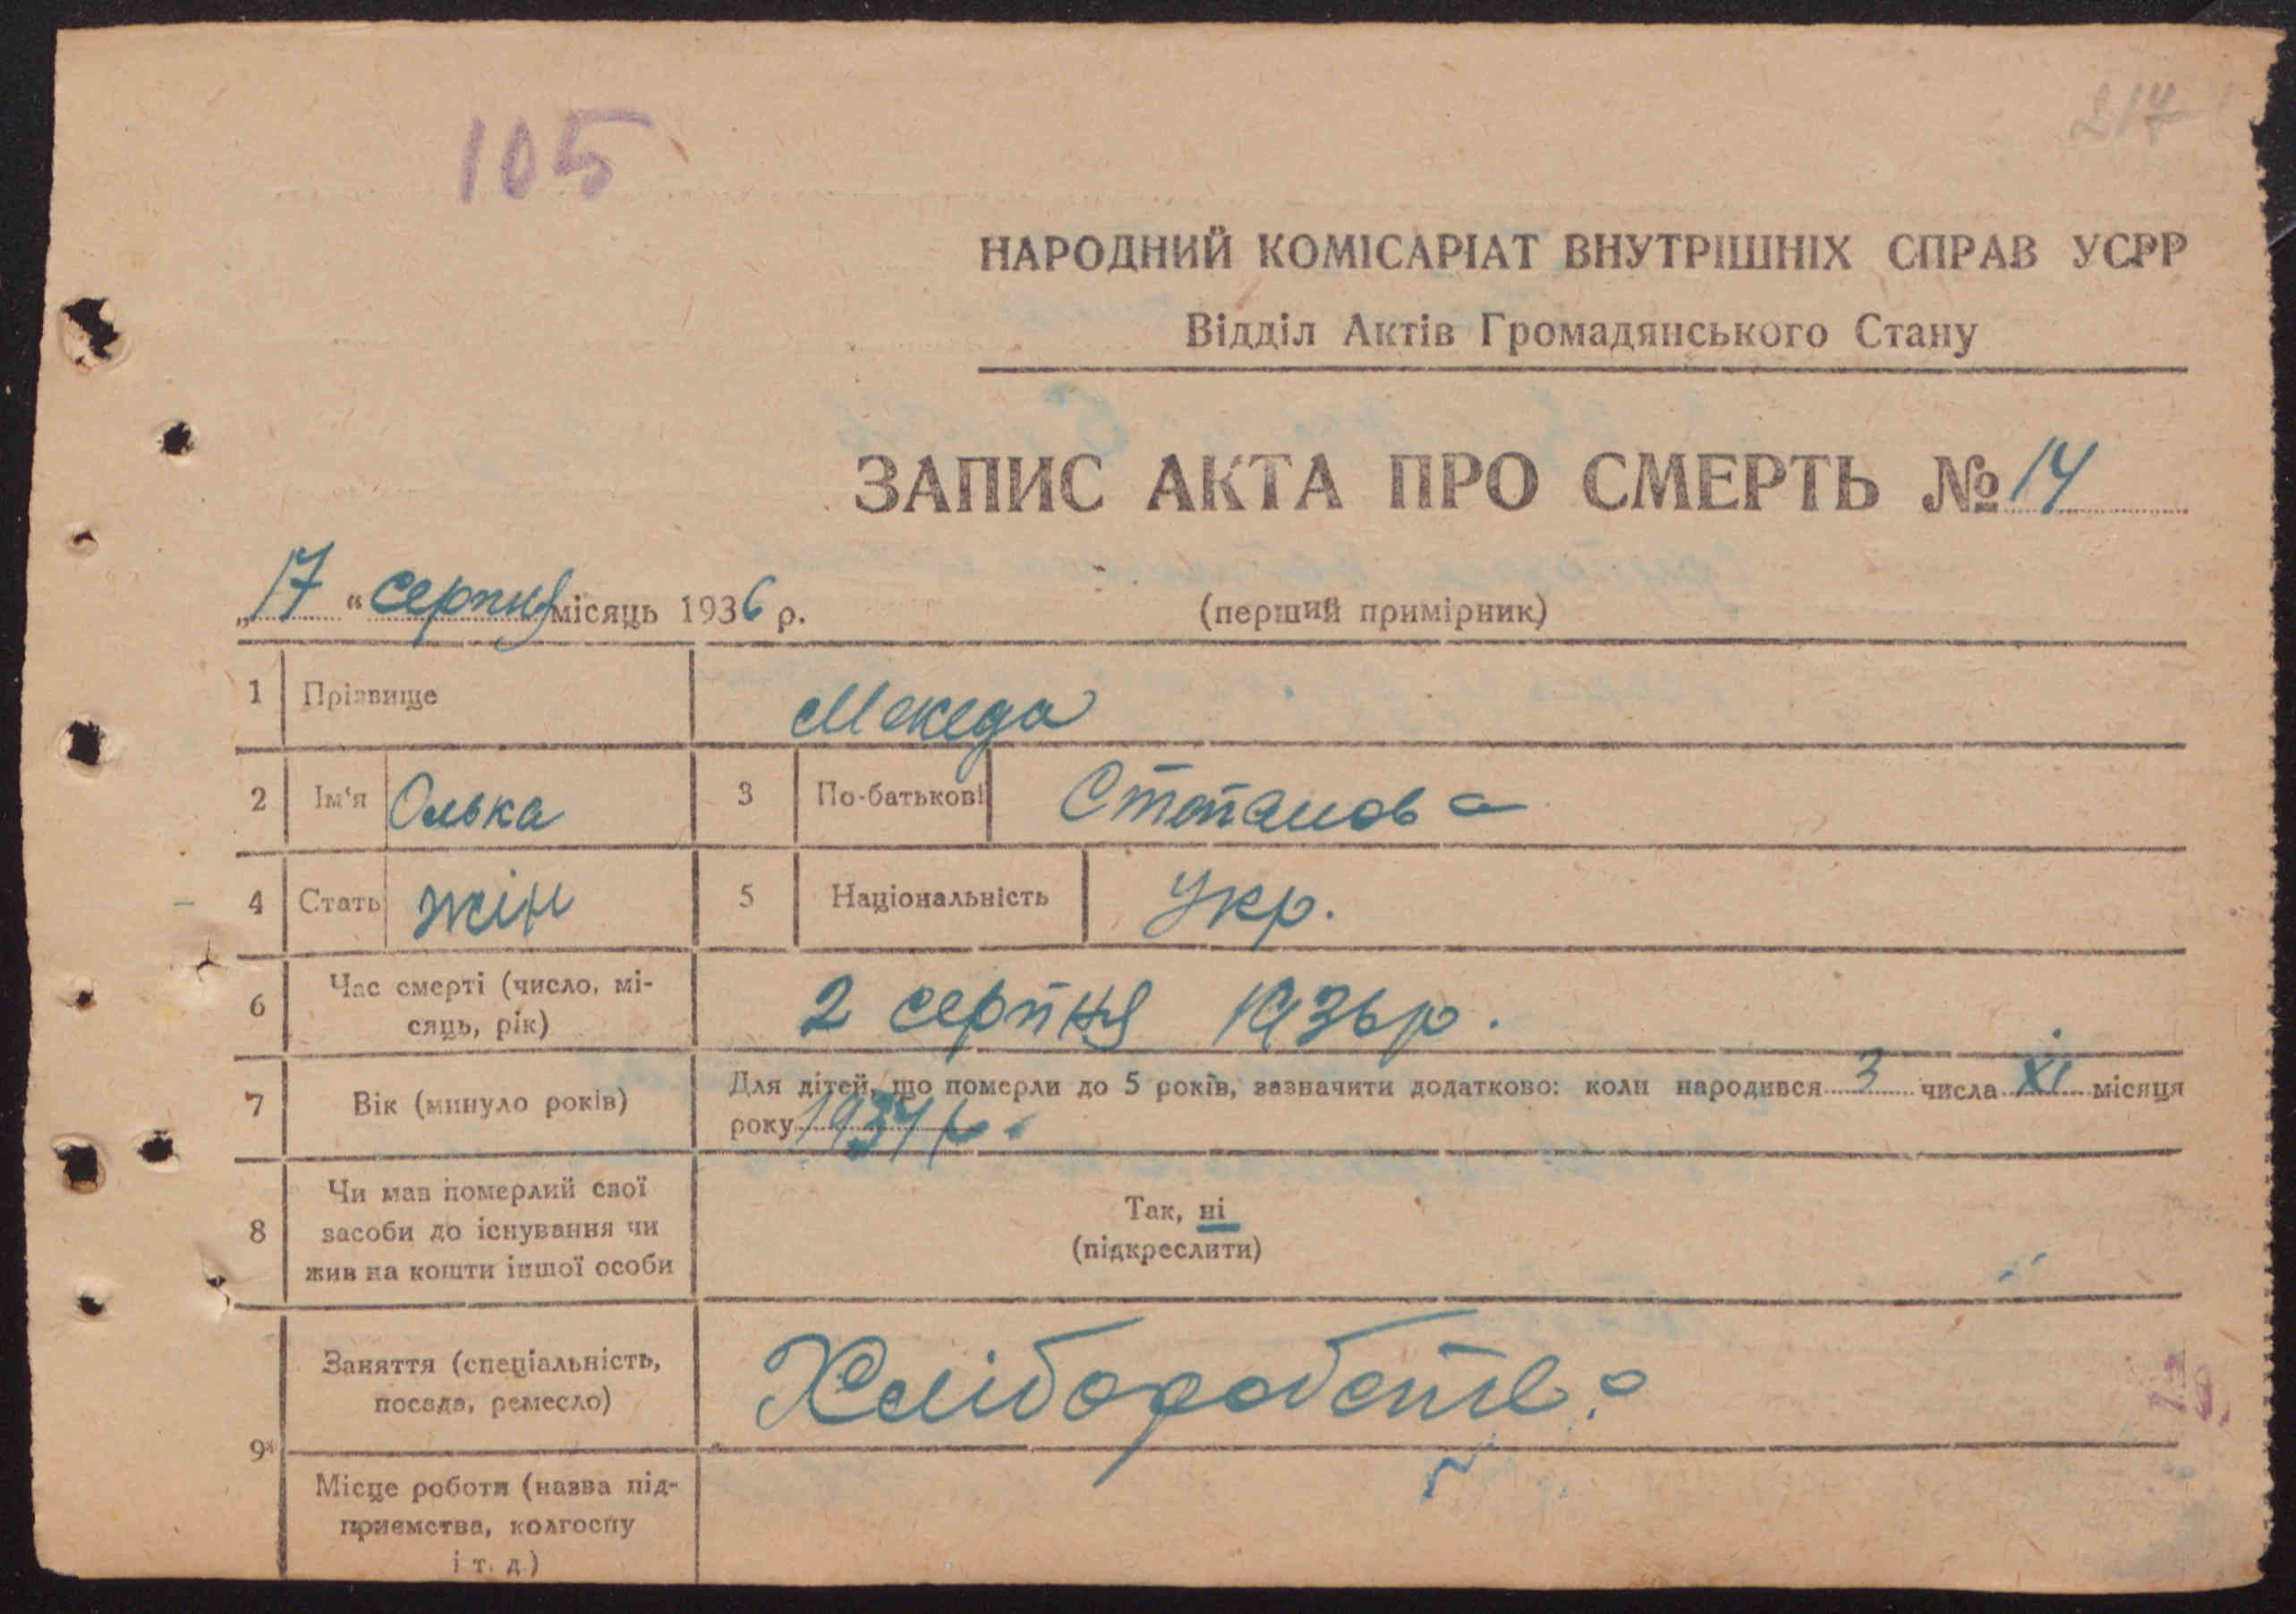 105
217
НАРОДНИЙ КОМІСАРІАТ ВНУТРІШНІХ СПРАВ УСРР
Відділ Актів Громадянського Стану
ЗАПИС АКТА ПРО СМЕРТЬ № 14
„17“ серпня місяць 1936 р.
(перший примірник)
1 Прізвище Мекеда
2 Ім'я Олька 3 По-батькові Степанова
4 Стать жін 5 Національність Укр.
6 Час смерті (число, мі-
сяць, рік) 2 серпня 1936 р.
7 Вік (минуло років) Для дітей, що померли до 5 років, зазначити додатково: коли народився 3 числа XI місяця
року 1934 р.
8 Чи мав померлий свої
засоби до існування чи
жив на кошти іншої особи
Так, ні
(підкреслити)
9 Заняття (спеціальність,
посада, ремесло) Хліборобство
Місце роботи (назва під-
приємства, колгоспу
і т. д.)